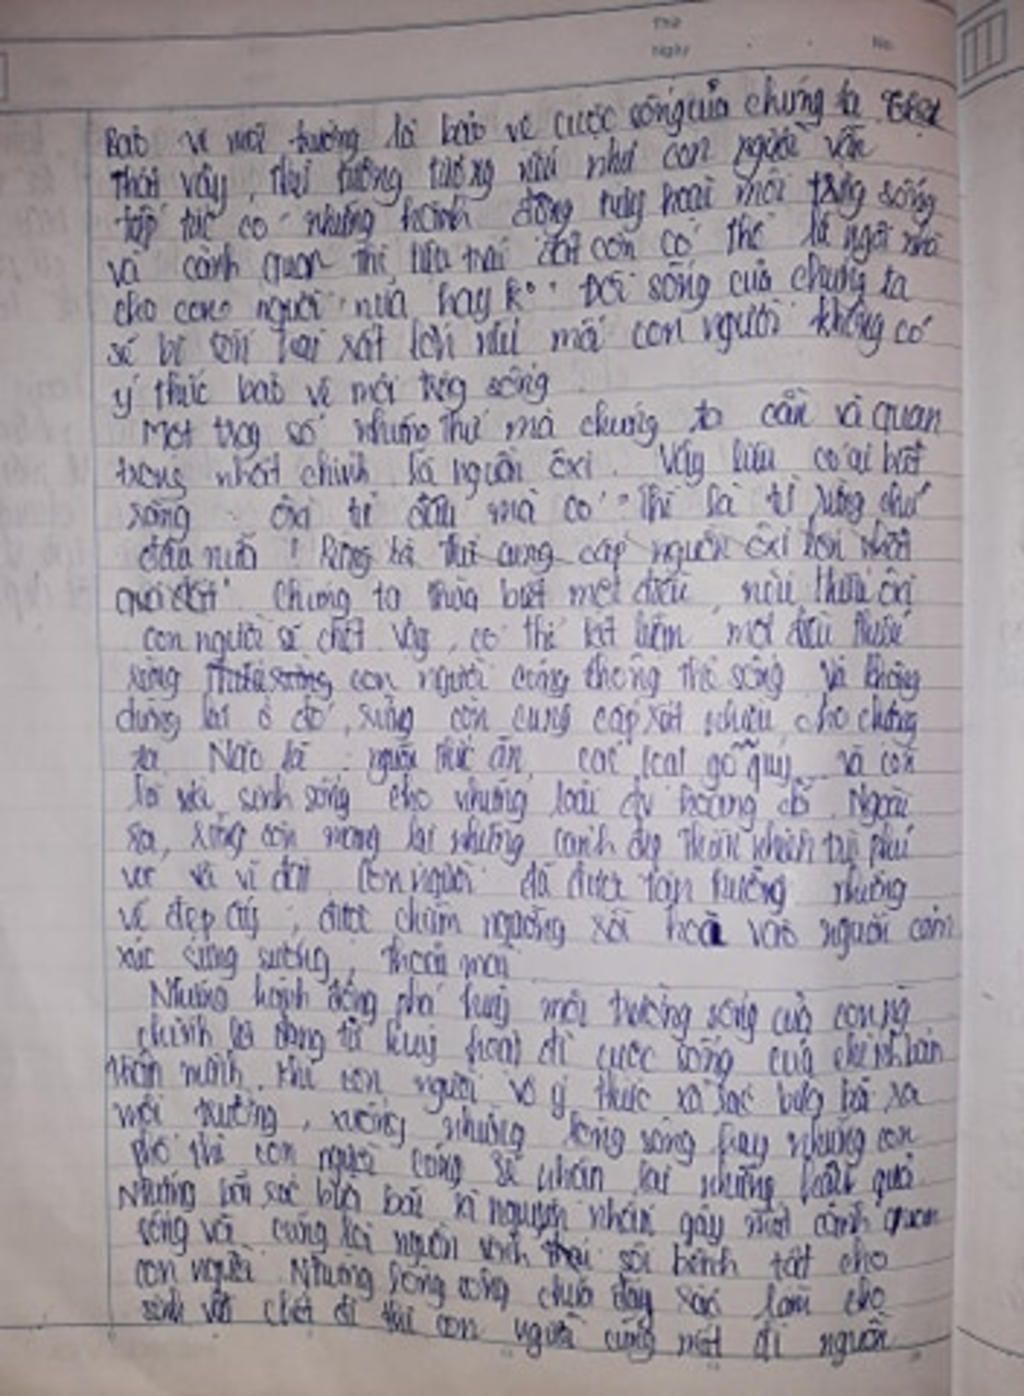 Thứ
Ngày No.
Bảo vệ môi trường là bảo vệ cuộc sống của chúng ta
Thật vậy, thử tưởng tượng nếu như con người vẫn
tiếp tục có những hành động hủy hoại môi trg sống
và cảnh quan thì liệu trái đất còn có thể là ngôi nhà
cho con người nữa hay ko. Đời sống của chúng ta
sẽ bị tổn hại rất lớn nếu mỗi con người không có
ý thức bảo vệ môi trg sống
Một trog số những thứ mà chúng ta cần và quan
trọng nhất chính là nguồn ôxi. Vậy liệu có ai biết
rằng ôxi từ đâu mà có. Thì là từ rừng chứ
đâu nữa! Rừng là thứ cung cấp nguồn ôxi lớn nhất
quả đất. Chúng ta thừa biết một điều, nếu thiếu ôxi
con người sẽ chết. Vậy, có thể kết luận một điều thiếu
rừng con người cũng không thể sống. Và không
dừng lại ở đó, rừng còn cung cấp rất nhiều cho chúng
ta. Nào là nguồn thức ăn, các loại gỗ quý và còn
là nơi sinh sống cho những loài đv hoang dã. Ngoài
ra, rừng còn mang lại những cảnh đẹp thiên nhiên trù phú
và vĩ đại. Con người đã được tận hưởng những
vẻ đẹp ấy, được chiêm ngưỡng rồi hoà vào nguồn cảm
xúc sung sướng, thoải mái
Những hành động phá hủy môi trường sống của con ng
chính là đang tự hủy hoại đi cuộc sống của chính bản
thân mình. Khi con người vô ý thức xả rác bừa bãi ra
môi trường, xuống những dòng sông hay những con
phố thì con người cũng sẽ nhận lại những hậu quả.
Những bãi rác bừa bãi là nguyên nhân gây mất cảnh quan
sống và cũng là nguồn sinh thái rồi bệnh tật cho
con người. Những dòng sông chứa đầy rác làm cho
sinh vật chết đi thì con người cũng mất đi nguồn